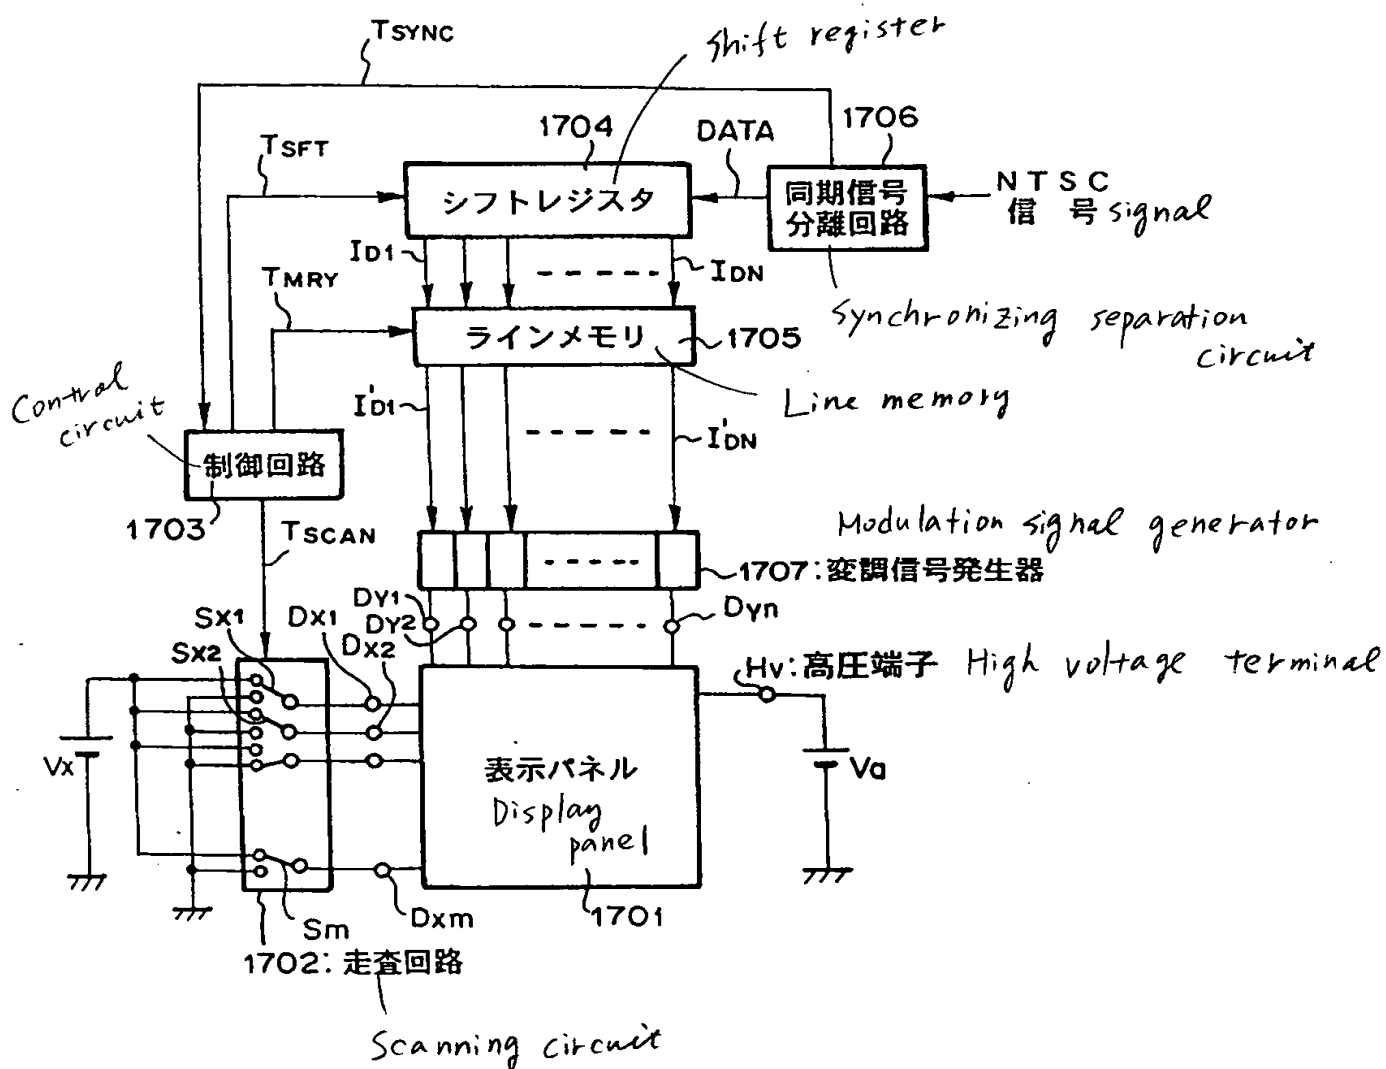 TSYNC
Shift register
1704
DATA
1706
TSFT
シフトレジスタ
同期信号
分離回路
NTSC
信号 signal
ID1
IDN
TMRY
Synchronizing separation
circuit
ラインメモリ
1705
Control
circuit
I'D1
Line memory
I'DN
制御回路
1703
TSCAN
Modulation signal generator
1707:変調信号発生器
DY1
DY2
Dyn
SX1
DX1
SX2
DX2
Hv:高圧端子 High voltage terminal
Vx
表示パネル
Display
panel
Va
1701
Sm
Dxm
1702:走査回路
Scanning circuit